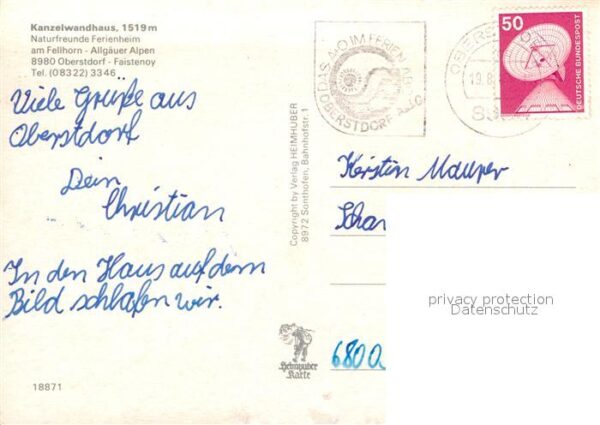 Kanzelwandhaus, 1519 m
Naturfreunde Ferienheim
am Fellhorn - Allgäuer Alpen
8980 Oberstdorf - Faistenoy
Tel. (08322) 3346
Viele Grüße aus
Oberstdorf
Dein
Christian
In den Haus auf dem
Bild schlafen wir.
18871
Copyright by Verlag HEIMHUBER
8972 Sonthofen, Bahnhofstr. 1
Heimhuber
Karte
DAS A-O IM FERIEN
OBERSTDORF
50
DEUTSCHE BUNDESPOST
Kerstin Maurer
6800
privacy protection
Datenschutz